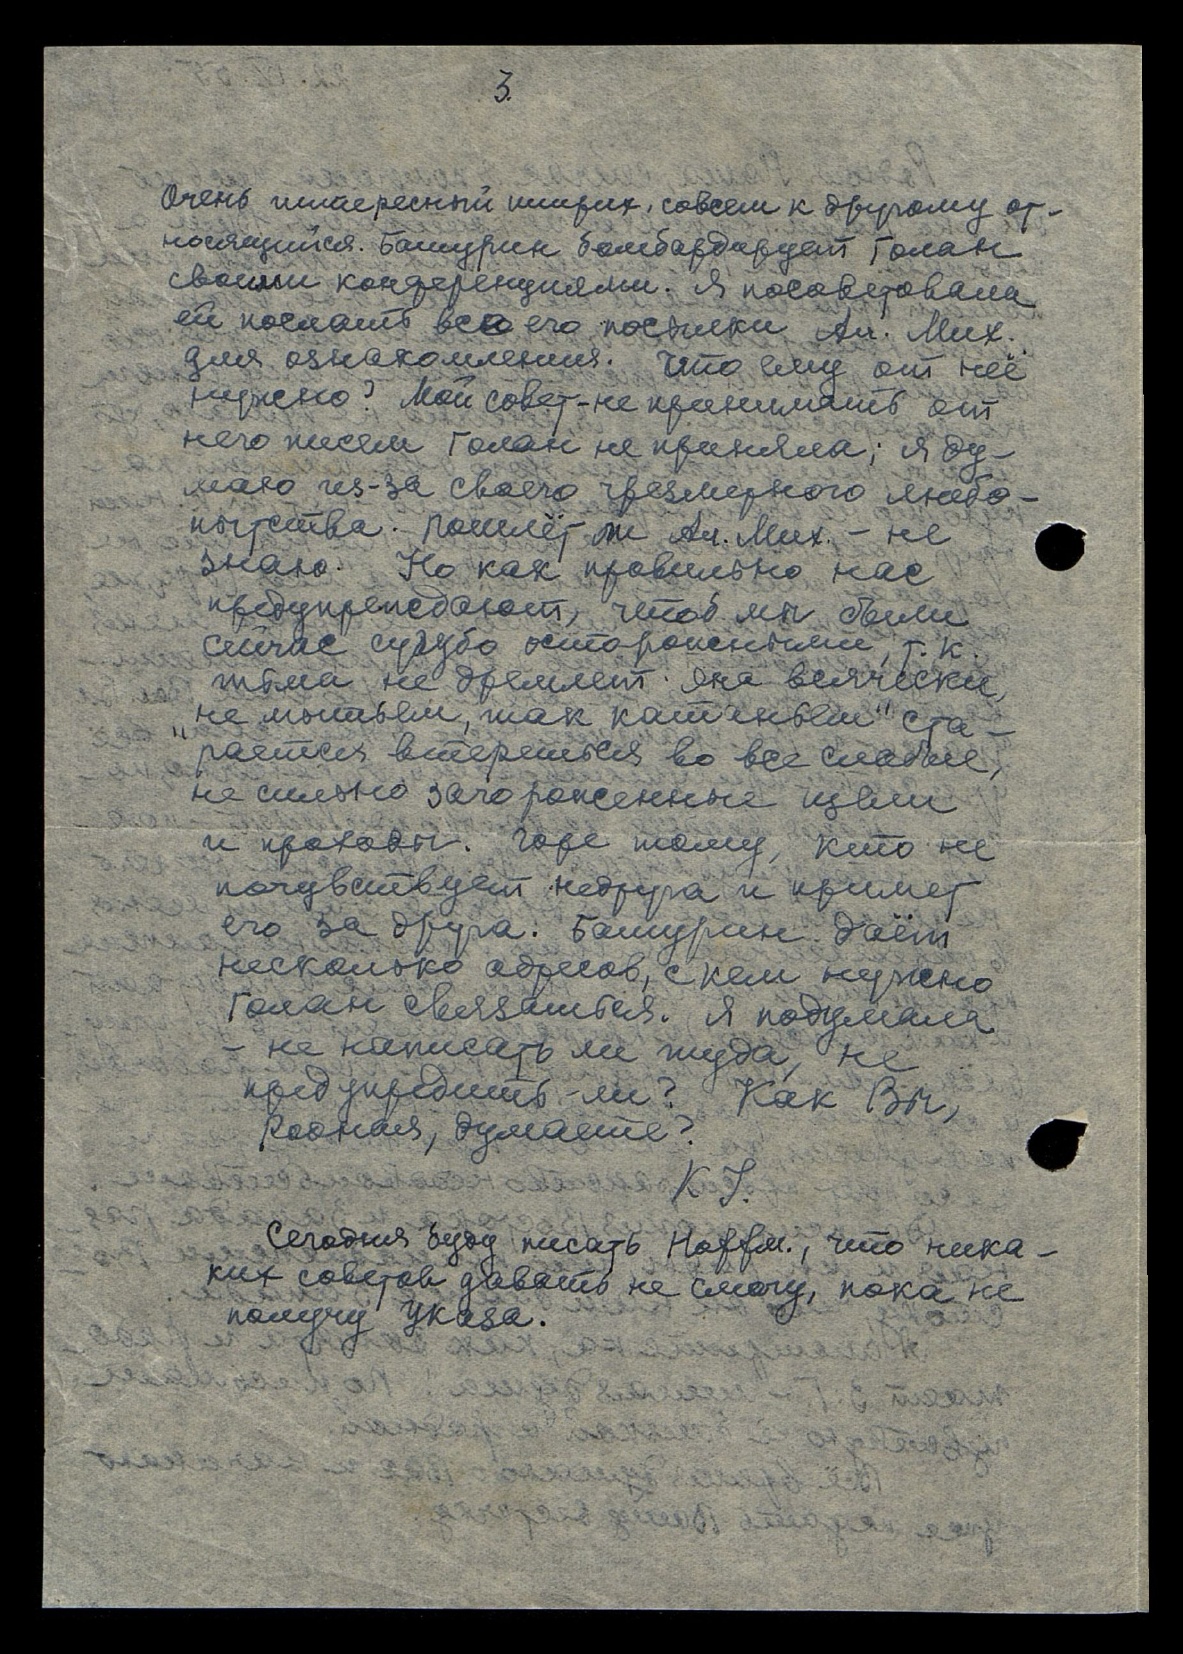 3.
Очень интересный штрих, совсем к другому от-
носящийся. Башурин бомбардирует Голан
своими конференциями. Я посоветовала
ей послать все его посылки Ал. Мих.
для ознакомления. Что ему от неё
нужно? Мой совет - не принимать от
него писем Голан не приняла; я ду-
маю из-за своего чрезмерного любо-
пытства. Пошлёт ли Ал. Мих. - не
знаю. Но как правильно нас
предупреждают, чтоб мы были
сейчас сугубо осторожными, т.к.
тьма не дремлет. Она всячески,
"не мытьем, так катаньем" ста-
рается втереться во все слабые,
не сильно загороженные щели
и проходы. Горе тому, кто не
почувствует недруга и примет
его за друга. Башурин даёт
несколько адресов, с кем нужно
Голан связаться. Я подумала
- не написать ли туда, не
предупредить-ли? Как Вы,
Родная, думаете?
К. У.
Сегодня буду писать Hoffm., что ника-
ких советов давать не смогу, пока не
получу Указа.